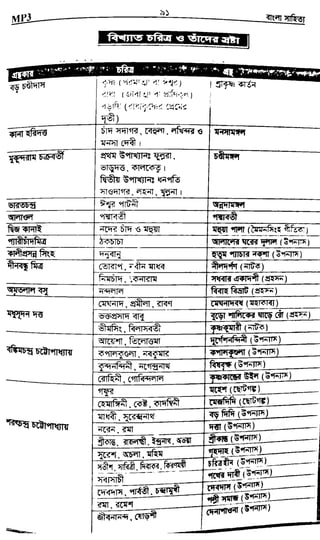 MP3 ৯১ বাংলা সাহিত্য
বিখ্যাত চরিত্র ও তাঁদের স্রষ্টা
গ্রন্থকার চরিত্র গ্রন্থ
বড়ু চণ্ডীদাস
কানা হরিদত্ত চাঁদ সদাগর, বেহুলা, লখিন্দর ও মনসামঙ্গল
মনসা দেবী।
মুকুন্দরাম চক্রবর্তী প্রথম উপাখ্যানঃ ফুল্লরা, চণ্ডীমঙ্গল
ভাড়ুদত্ত, কালকেতু।
দ্বিতীয় উপাখ্যানঃ ধনপতি
সদাগর, লহনা, খুল্লনা।
ভারতচন্দ্র ঈশ্বর পাটনী অন্নদামঙ্গল
আলাওল পদ্মাবতী পদ্মাবতী
দ্বিজ কানাই নদের চাঁদ ও মহুয়া মহুয়া পালা
প্যারীচাঁদ মিত্র ঠকচাচা আলালের ঘরের দুলাল (উপন্যাস)
কালীপ্রসন্ন সিংহ দনুবাবু হুতুম প্যাঁচার নকশা (উপন্যাস)
দীনবন্ধু মিত্র তোরাপ, নবীন মাধব নীলদর্পণ (নাটক)
নিমচাঁদ, সধবার একাদশী (প্রহসন)
অমৃতলাল বসু নন্দলাল বিবাহ বিভ্রাট (প্রহসন)
মধুসূদন দত্ত মেঘনাদ, প্রমীলা, রাবণ মেঘনাদবধ (মহাকাব্য)
ভক্তপ্রসাদ বাবু বুড়ো শালিকের ঘাড়ে রোঁ (প্রহসন)
ভীমসিংহ, বিলাসবতী কৃষ্ণকুমারী (নাটক)
বঙ্কিমচন্দ্র চট্টোপাধ্যায় আয়েশা, তিলোত্তমা দুর্গেশনন্দিনী (উপন্যাস)
কপালকুণ্ডলা, নবকুমার কপালকুণ্ডলা (উপন্যাস)
কুন্দনন্দিনী, নগেন্দ্রনাথ বিষবৃক্ষ (উপন্যাস)
রোহিনী, গোবিন্দলাল কৃষ্ণকান্তের উইল (উপন্যাস)
শরৎচন্দ্র চট্টোপাধ্যায় গফুর মহেশ (ছোটগল্প)
হেমাঙ্গিনী, কেষ্ট, কাদম্বিনী মেজদিদি (ছোটগল্প)
মাধবী, সুরেন্দ্রনাথ বড় দিদি (উপন্যাস)
নরেন, রমা দত্তা (উপন্যাস)
শ্রীকান্ত, রাজলক্ষ্মী, ইন্দ্রনাথ, অভয়া শ্রীকান্ত (উপন্যাস)
সুরেশ, অচলা, মহিম গৃহদাহ (উপন্যাস)
সতীশ, সাবিত্রী, দিবাকর, কিরণময়ী চরিত্রহীন (উপন্যাস)
সব্যসাচী পথের দাবী (উপন্যাস)
দেবদাস, পার্বতী, চন্দ্রমুখী দেবদাস (উপন্যাস)
রমা, রমেশ পল্লী সমাজ (উপন্যাস)
জীবানন্দ, ষোড়শী দেনাপাওনা (উপন্যাস)